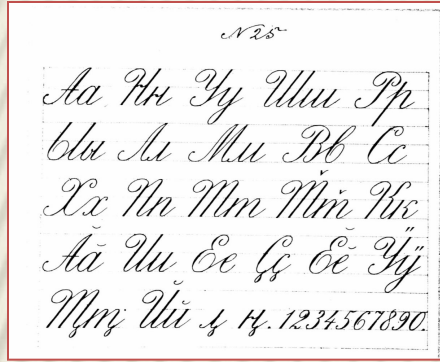 № 25
Аа Нн Уу Шш Рр
Ыы Лл Мм Вв Сс
Хх Пп Тт Т̌т̌ Кк
Ӑӑ Ии Ее Ҫҫ Ӗӗ Ӳӳ
Т̡т̡ Йй л̡ н̡. 1234567890.